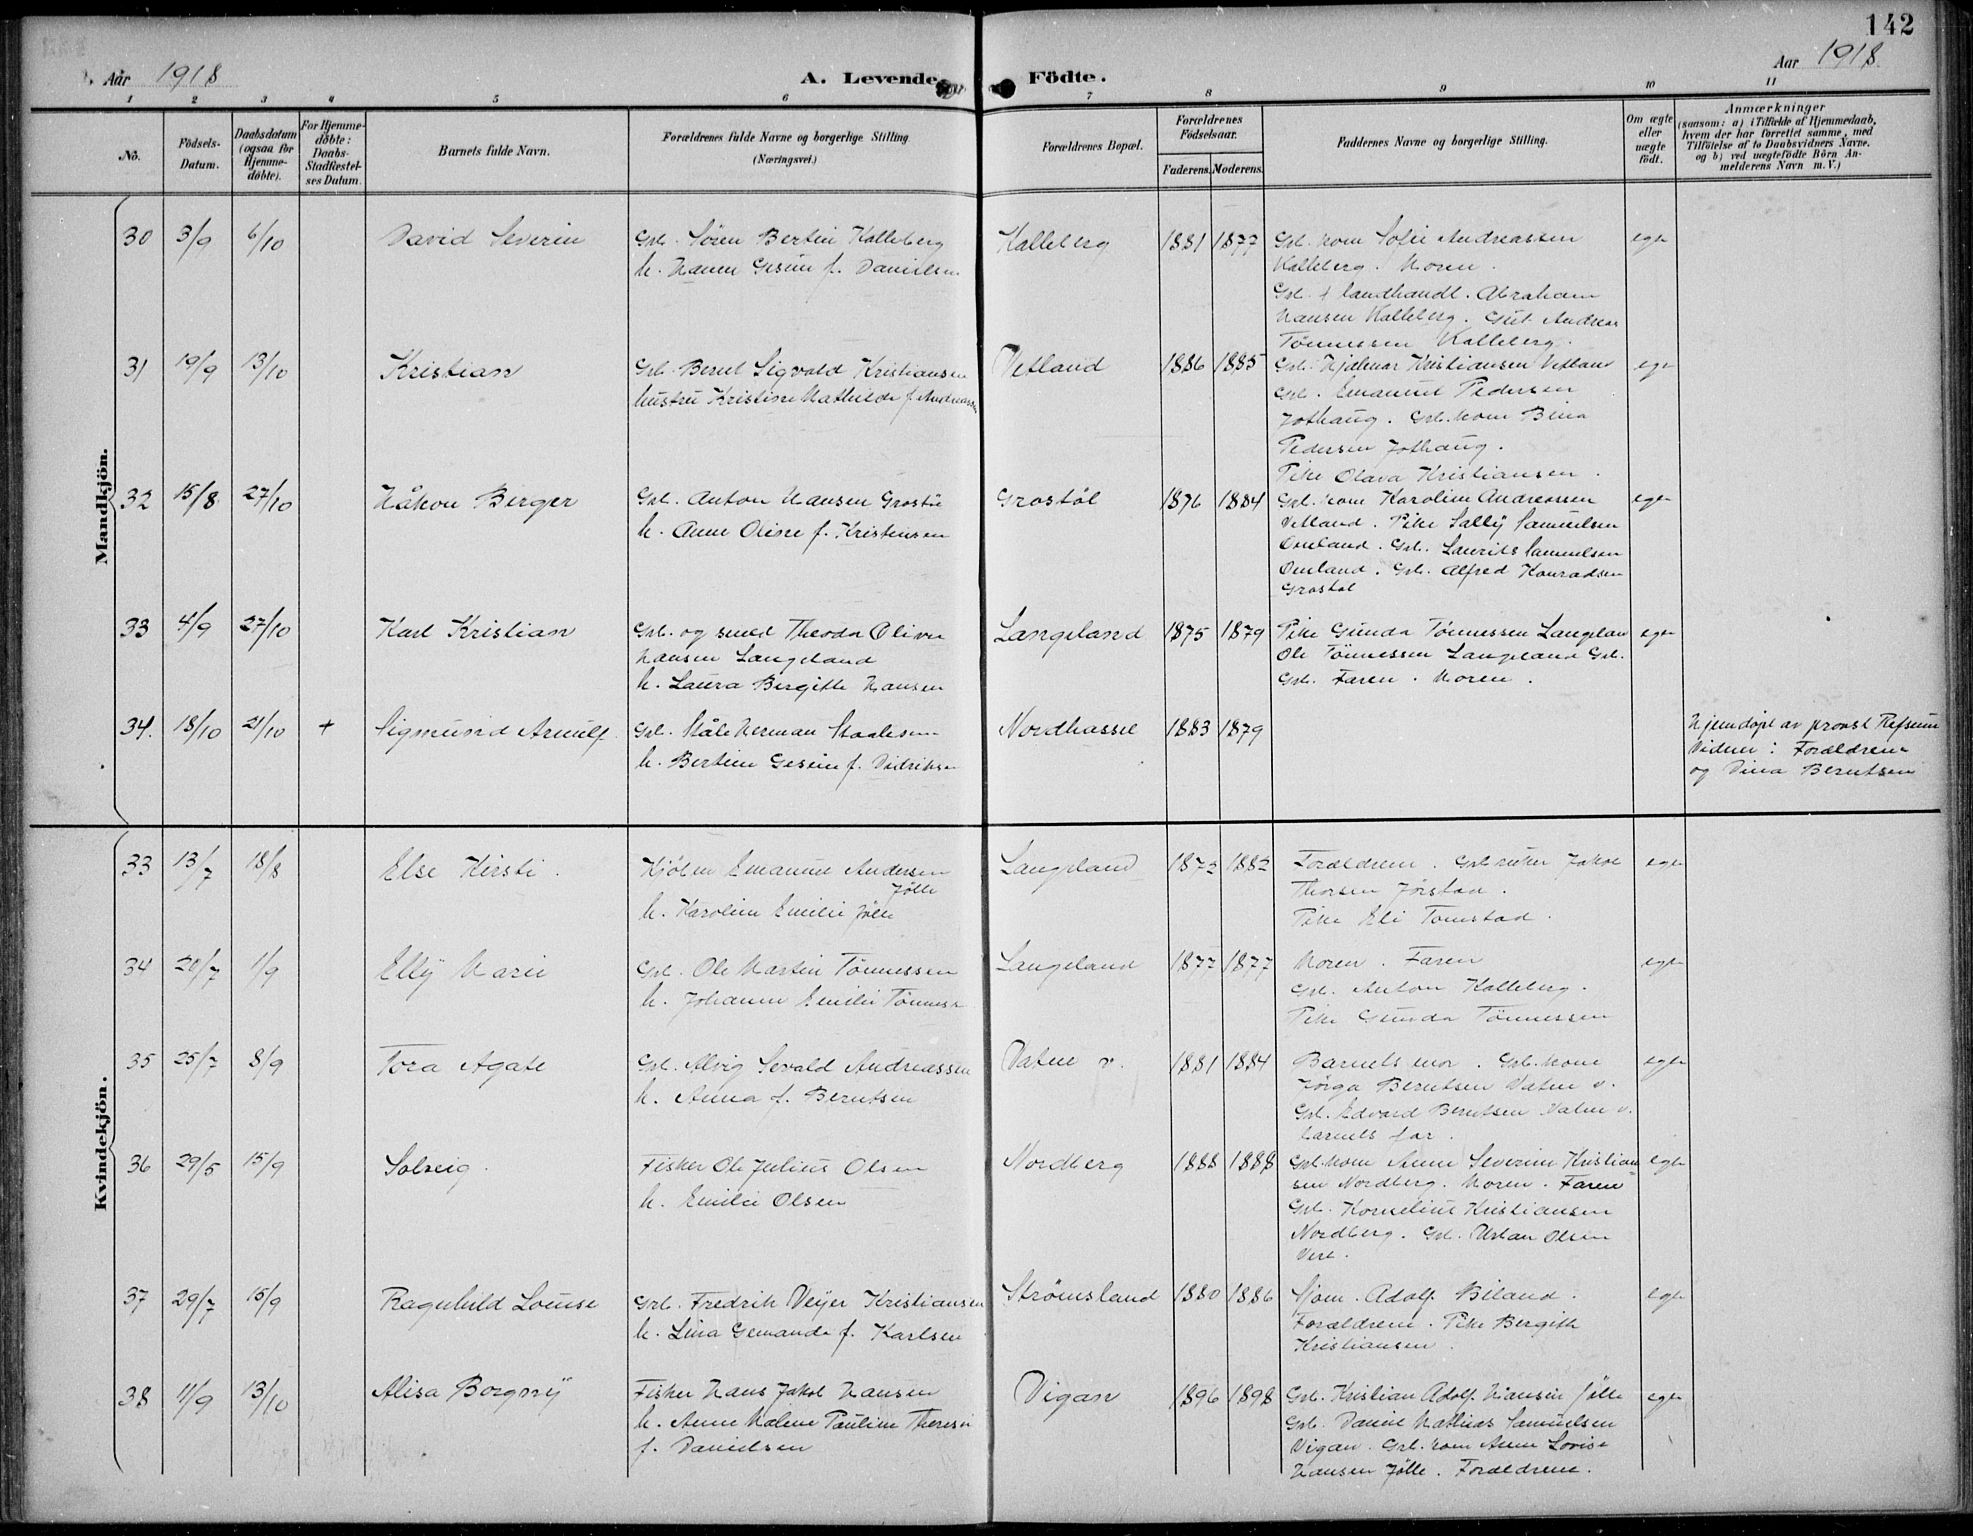 142
Aar 1918
A. Levende Födte.
Aar 1918
1 2 3 4 5 6 7 8 9 10 11
No.
Födsels-Datum.
Daabsdatum (ogsaa for Hjemme-döbte).
For Hjemme-döbte: Daabs-Stadfæstel-ses Datum.
Barnets fulde Navn.
Forældrenes fulde Navne og borgerlige Stilling
(Næringsvei.)
Forældrenes Bopæl.
Forældrenes Födselsaar.
Faderens. Moderens.
Faddernes Navne og borgerlige Stilling.
Om ægte eller uægte födt.
Anmærkninger
(saasom: a) i Tilfælde af Hjemmedaab, hvem der har forrettet samme, med Tilföielse af to Daabsvidners Navne. og b) ved uægtefödte Börn An-melderens Navn m.V.)
Mandkjön.
30 3/9 6/10 David Severin
Grb. Søren Bertin Kalleberg
h. Hanna Gesine f. Danielsen
Kalleberg 1881 1877
Grb. kone Sofie Andreassen
Kalleberg. Moren.
Grb. & landhandl. Abraham
Hansen Kalleberg. Gut Andreas
Tönnessen Kalleberg.
egte
31 19/9 13/10 Kristian
Grb. Bernt Sigvald Kristiansen
hustru Kristine Mathilde f. Andreassen
Vetland 1886 1885
Grb. Hjalmar Kristiansen Vetland
Grb. Emanuel Pedersen
Jothaug. Grb. kone Bina
Pedersen Jothaug.
Pike Olava Kristiansen.
egte
32 15/8 27/10 Håkon Birger
Grb. Anton Hansen Grostøl
h. Anne Oline f. Kristensen
Grostøl 1876 1884
Grb. kone Karoline Andreassen
Vetland. Pike Sally Samuelsen
Omland. Grb. Laurits Samuelsen
Omland. Grb. Alfred Konradsen
Grostøl
egte
33 4/9 27/10 Karl Kristian
Grb. og smed Theodor Oliver
Hansen Langeland
h. Laura Bergitte Hansen
Langeland 1875 1879
Pike Gunda Tönnessen Langeland
Ole Tönnessen Langeland Grb.
Grb. Faren. Moren.
egte
34. 18/10 21/10 + Sigmund Arnulf.
Grb. Ståle Herman Staalesen
h. Bertine Gesine f. Didriksen
Nordhassel 1883 1879
Hjemdøpt av provst Refsum
Vidner: Forældrene
og Dina Berntsen
Kvindekjön.
33 13/7 18/8 Else Kirsti.
Kjölm Emanuel Andersen
Jölle
h. Karoline Emilie Jölle
Langeland 1872 1882
Forældrene. Grb. enker Jakob
Thorsen Jörstad.
Pike Eli Tomstad.
egte
34 20/7 1/9 Elly Marie
Grb. Ole Martin Tönnessen
h. Johanne Emilie Tönness
Langeland 1877 1877
Moren. Faren
Grb. Anton Kalleberg.
Pike Gunda Tönnessen
egte
35 25/7 8/9 Tora Agate
Grb. Alvig Sevald Andreassen
h. Anna f. Berntsen
Vatne v. 1881 1884
Barnets mor. Grb. kone
Jörga Berntsen Vatne v.
Grb. Edvard Berntsen Vatne v.
barnets far.
egte
36 29/5 15/9 Solveig.
Fisker Ole Julius Olsen
h. Emilie Olsen
Nordberg 1888 1888
Grb. kone Anne Severine Kristian
sen Nordberg. Moren. Faren
Grb. Kornelius Kristiansen
Nordberg. Grb. Urban Olsen
Vere.
egte
37 29/7 15/9 Ragnhild Louise
Grb. Fredrik Veijer Kristiansen
h. Lina Gemanda f. Karlsen
Strömsland 1880 1886
Sjøm. Adolf Biland.
Forældrene. Pike Bergith
Kristiansen.
egte
38 11/9 13/10 Alisa Borgny
Fisker Hans Jakob Hansen
h. Anne Malene Pauline Theresi
f. Danielsen
Vigan 1896 1898
Grb. Kristian Adolf Hansen Jölle
Grb. Daniel Mathias Samuelsen
Vigan. Grb. kone Anne Lovise
Hansen Jölle. Forældrene.
egte